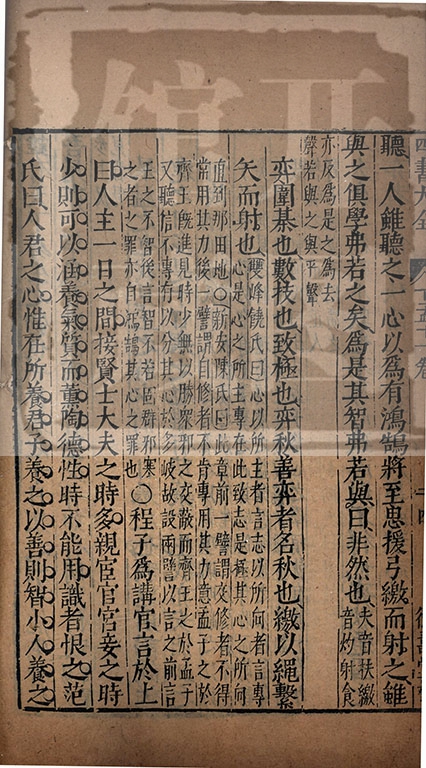 聽一人雖聽之一心以爲有鴻鵠將至思援弓繳而射之雖
與之俱學弗若之矣爲是其智弗若與曰非然也夫音扶繳音灼射食
亦反爲是之爲去聲若與之與平聲
弈圍棊也數技也致極也弈秋善弈者名秋也繳以繩繫
矢而射也雙峰饒氏曰心以所主者言志以所向者言專心是心之所主專在此致志是極其心之所向
直到那田地○新安陳氏曰此章前一譬謂交修者不得常用其力後一譬謂自修者不肯專用其力意孟子之於
齊王旣進見時少無以勝衆邪之交蔽而齊王之於孟子又聽信不專有以分其心於多岐故設兩譬以言之前言
王之不智後言智不若固群邪寒之者之罪亦自鴻鵠其心之罪也○程子爲講官言於上
曰人主一日之間接賢士大夫之時多親宦官宮妾之時
少則可以涵養氣質而薰陶德性時不能用識者恨之范
氏曰人君之心惟在所養君子養之以善則智小人養之